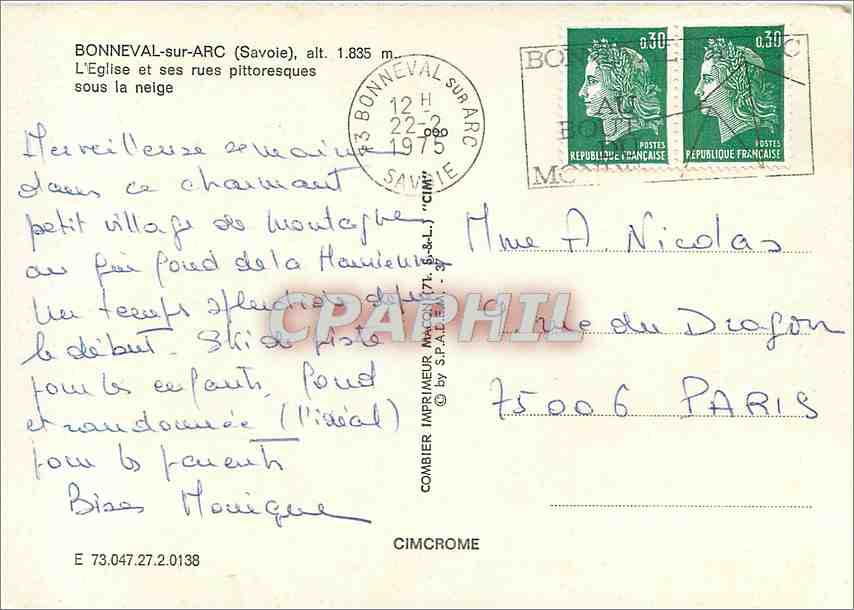 BONNEVAL-sur-ARC (Savoie), alt. 1.835 m.
L'Eglise et ses rues pittoresques
sous la neige
Merveilleuse semaine
dans ce charmant
petit village de montagne
au fin fond de la Maurienne
Un temps splendide depuis
le début. Ski de piste
pour les enfants, fond
et randonnée (l'idéal)
pour les parents
Bises Monique
E 73.047.27.2.0138
73 BONNEVAL sur ARC
12 H
22-2
1975
SAVOIE
BONNEVAL SUR ARC
AU
BOUT
DU
MONDE
0,30
POSTES
REPUBLIQUE FRANÇAISE
0,30
POSTES
REPUBLIQUE FRANÇAISE
COMBIER IMPRIMEUR MACON (71. S.-&-L.) "CIM"
© by S.P.A.D.E.M. - 3
CPAPHIL
Mme A. Nicolas
9, rue du Dragon
75006 PARIS
CIMCROME